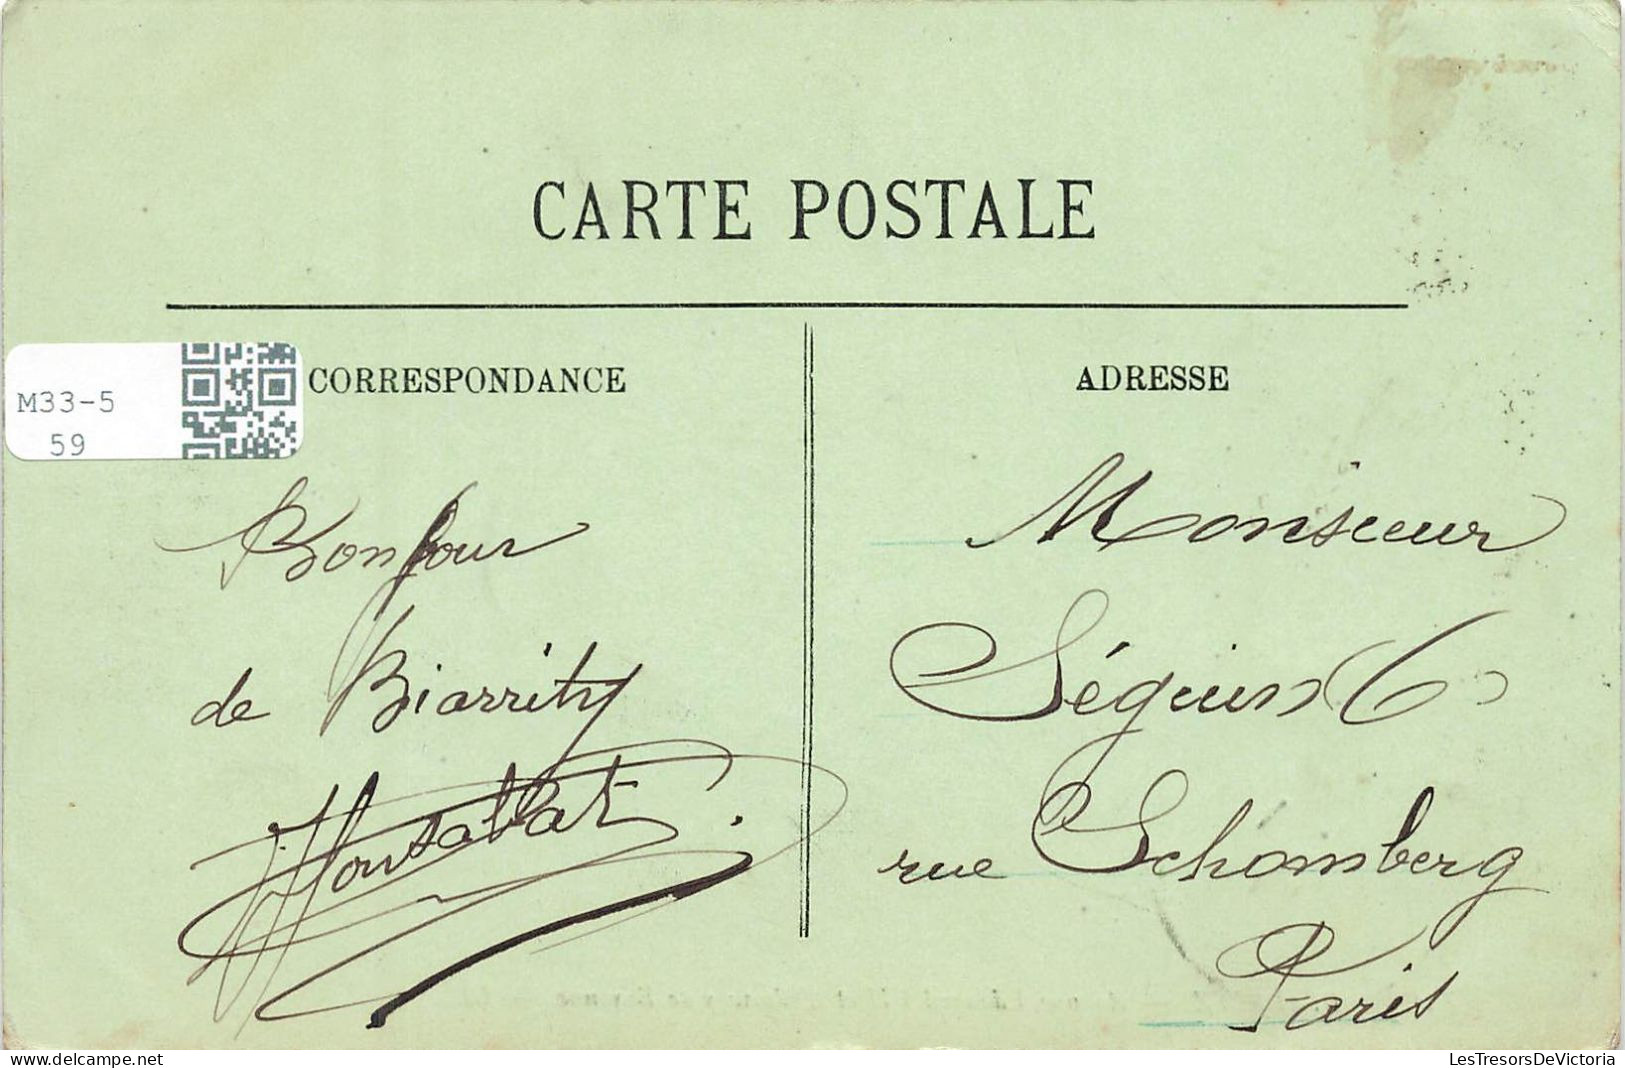 CARTE POSTALE
M33-5
59
CORRESPONDANCE
Bonjour
de Biarritz
ADRESSE
Monsieur
Séguin 6
rue Schomberg
Paris
LesTresorsDeVictoria